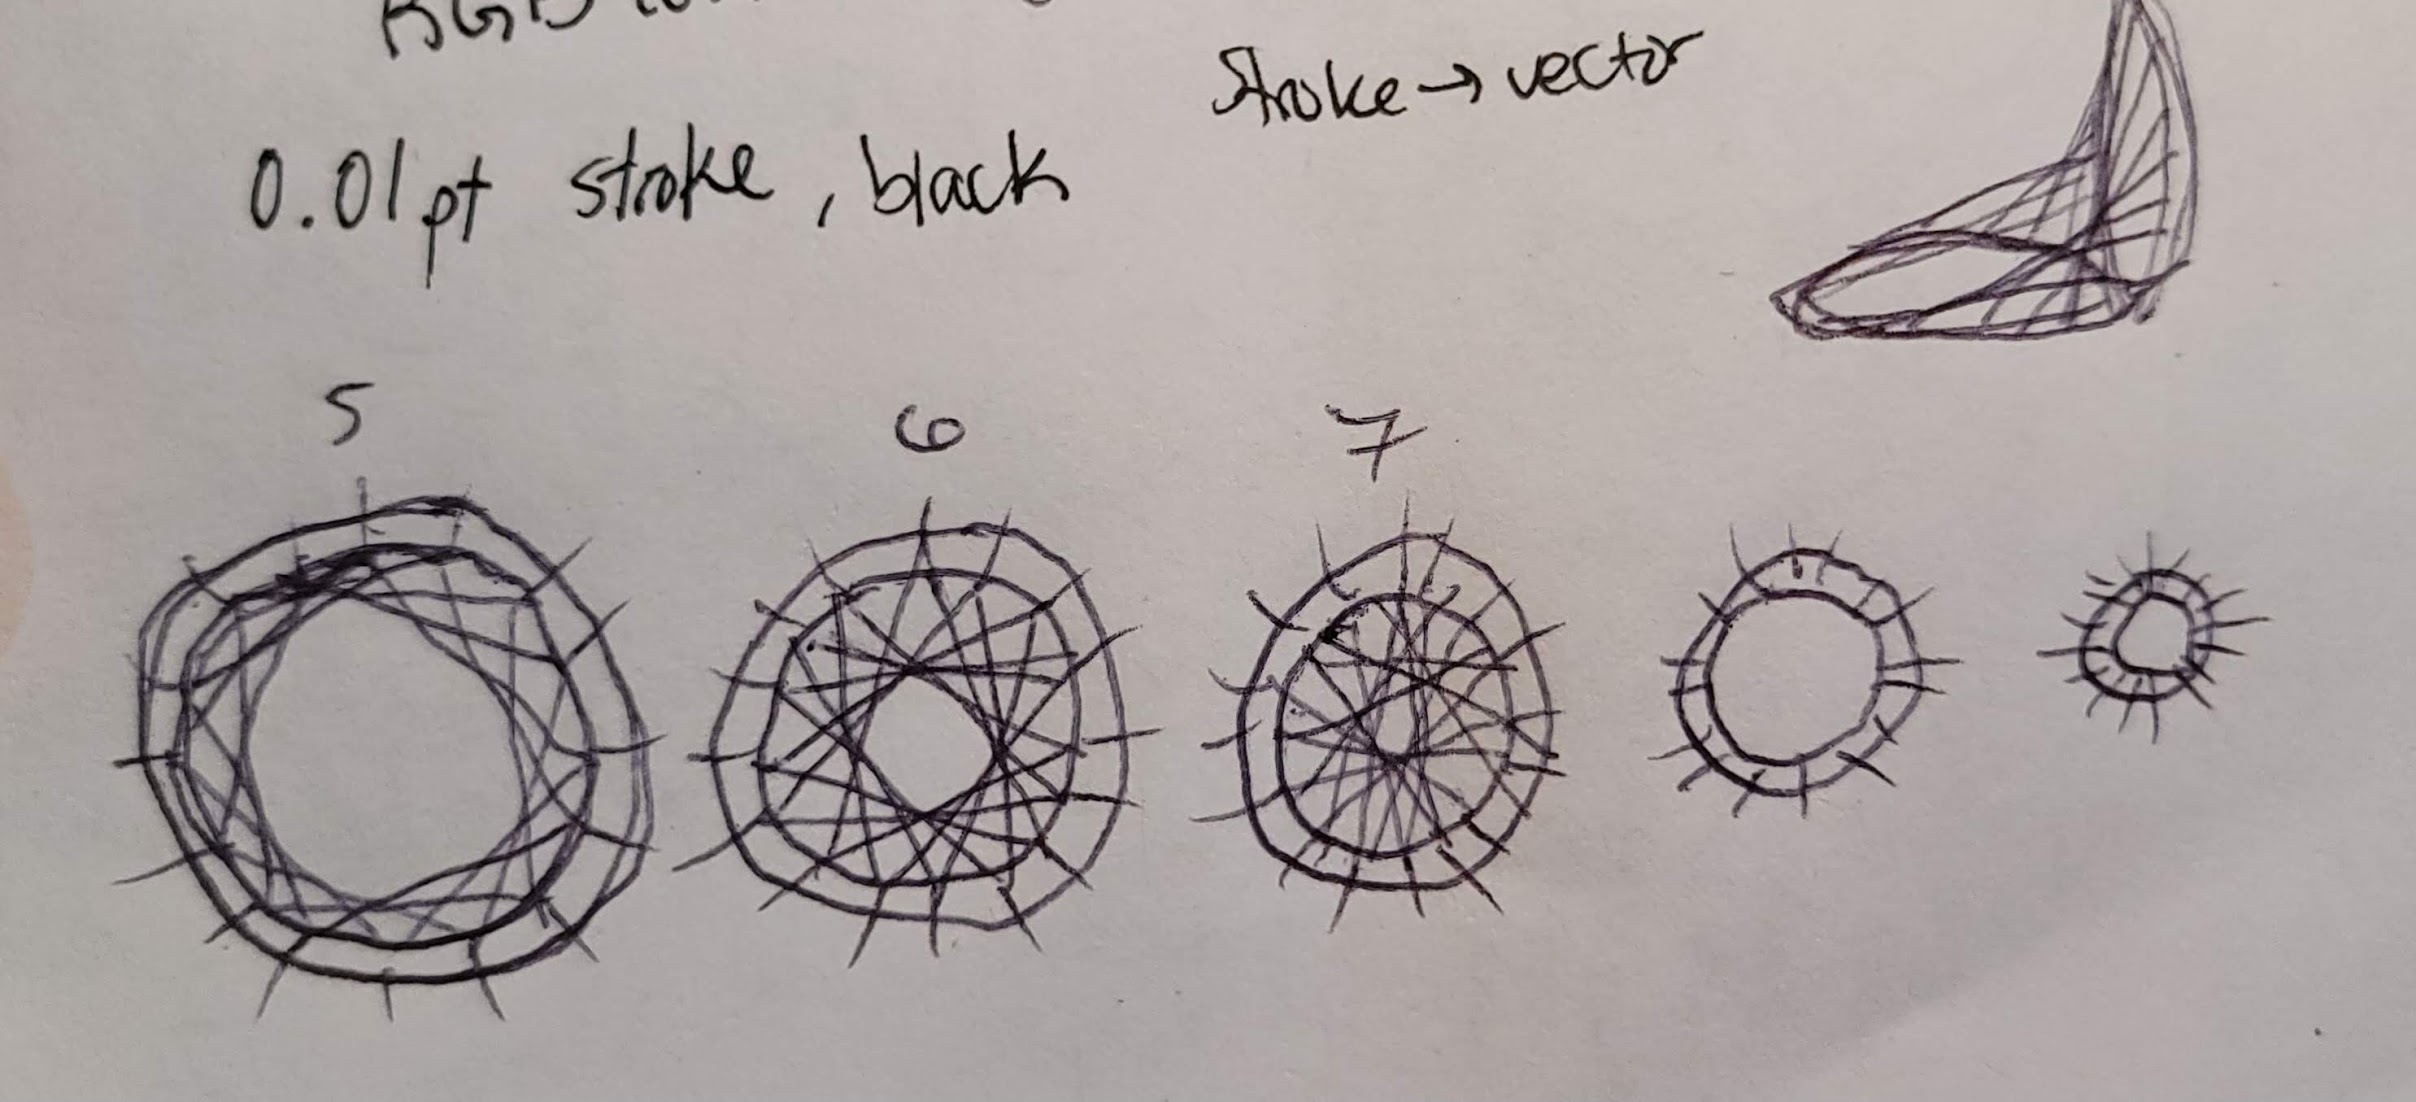 RGB
Stroke → vector
0.01pt stroke, black
5 6 7